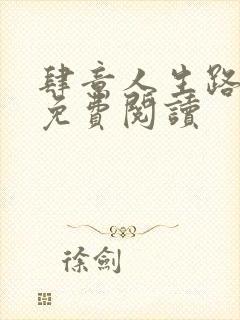 肆意人生路
免費閱讀
徐劍